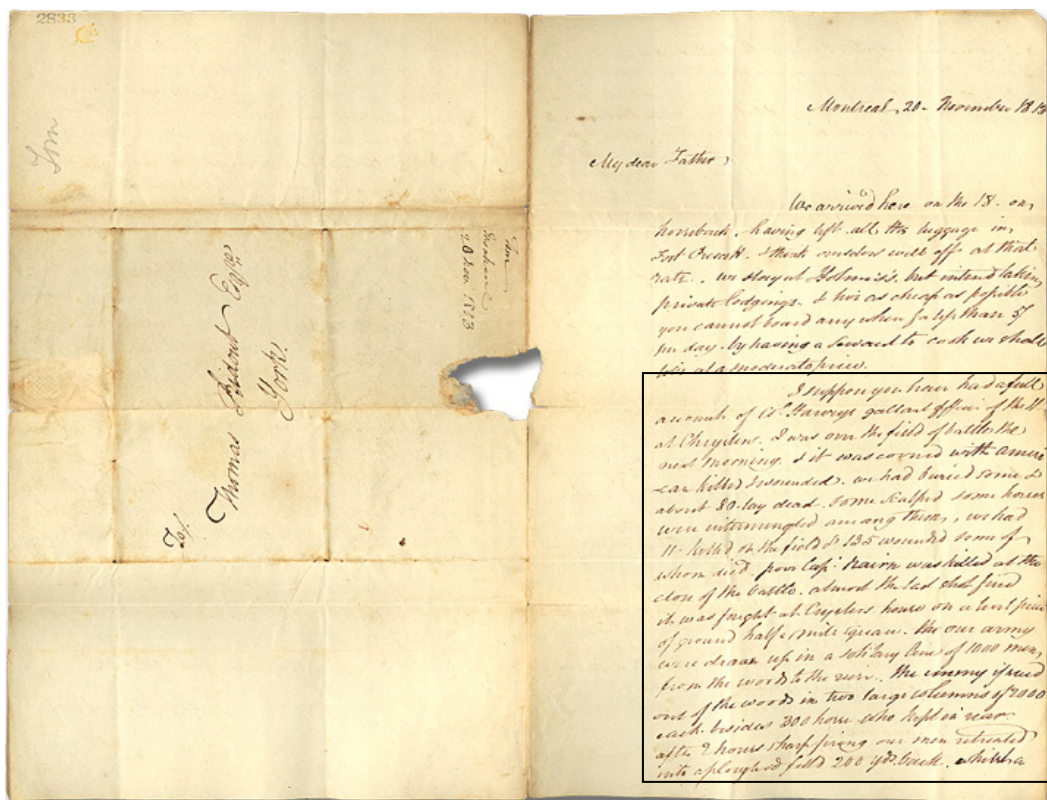 2833
Tom
To/
Thomas Ridout Esqre
York
Tom
20 Nov. 1813
Montreal, 20 - November 1813
My dear Father,
We arrived here on the 18. on
horseback, having left all the luggage in
Fort Prescott. I think ourselves well off at that
rate. we stay at but intend taking
private lodgings. & live as cheap as possible
you cannot board any where for less than 5/
per day. by having a servant to cook we shall
live at a moderate price.
I suppose you have had a full
account of Col. Harveys gallant affair of the 11.
at Chryslers. I was over the field of battle the
next morning. & it was covered with Ameri
can killed & wounded. we had buried some &
about 80 lay dead. some scalped some horses
were intermingled among them, we had
11. killed on the field & 135 wounded some of
whom died. poor Capt. Nairn was killed at the
close of the battle. almost the last shot fired
it was fought at Cryslers house on a level piece
of ground half a mile square. the our army
were drawn up in a solitary line of 1000 men,
from the woods to the river. the enemy issued
out of the woods in two large columns of 2000
each. besides 300 horse who kept in rear.
after 2 hours sharp firing our men retreated
into a ploughed field 200 yds. back. while a